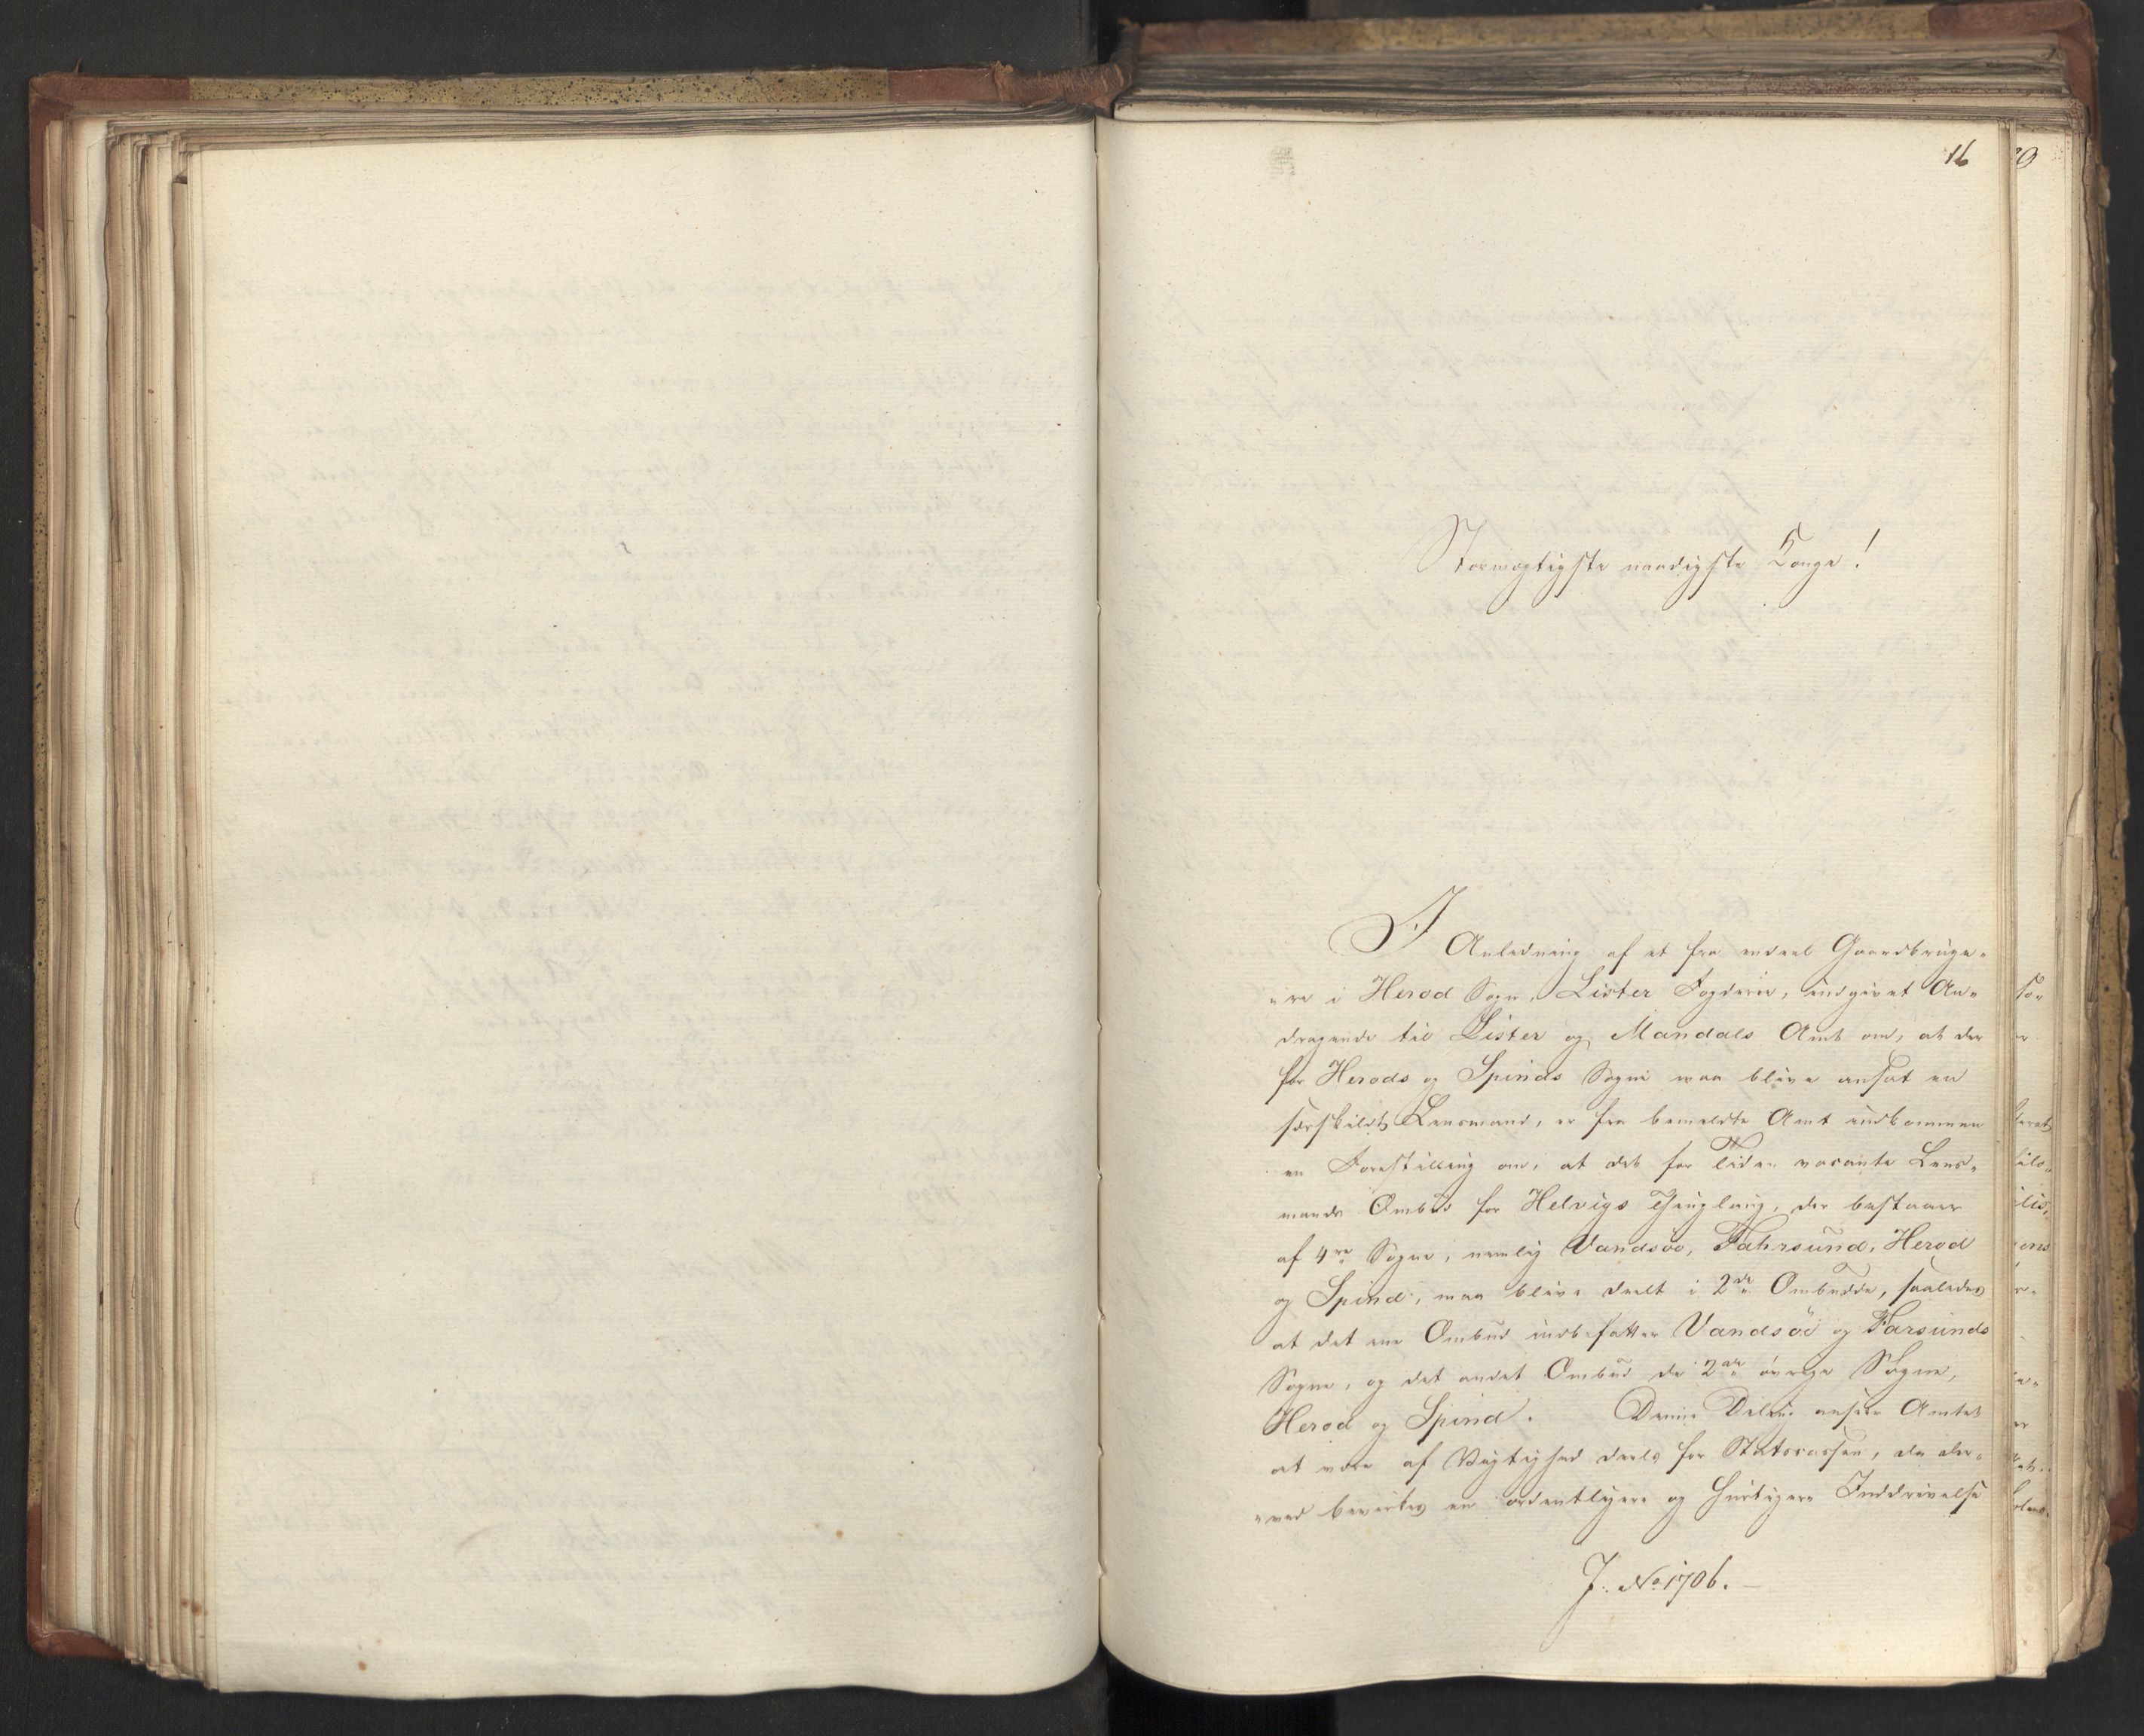 16
Stormægtigste naadigste Konge!
I Anledning af at fra endeel Gaardbruge-
"re i Herod Sogn, Lister Fogderie, indgivet An-
dragende til Lister og Mandals Amt om, at der
for Herods og Spinds Sogne maa blive ansat en
særskildt Lensmand, er fra bemeldte Amt indkommen
en Forestilling om, at det for Tiden vacante Lens-
mands Ombud for Helvigs Thinglaug, der bestaaer
af 4re Sogne, nemlig Vandsöe, Fahrsund, Herod
og Spind, maa blive deelt i 2de Ombudde, saaledes
at det ene Ombud indbefatter Vandsöe og Farsunds
Sogne, og det andet Ombud de 2de övrige Sogne,
Herod og Spind. Denne Deling anseer Amtet
at være af Vigtighed deels for Statscassen, da der-
"ved bevirkes en ordentligere og hurtigere Inddrivelse
J. No 1706.